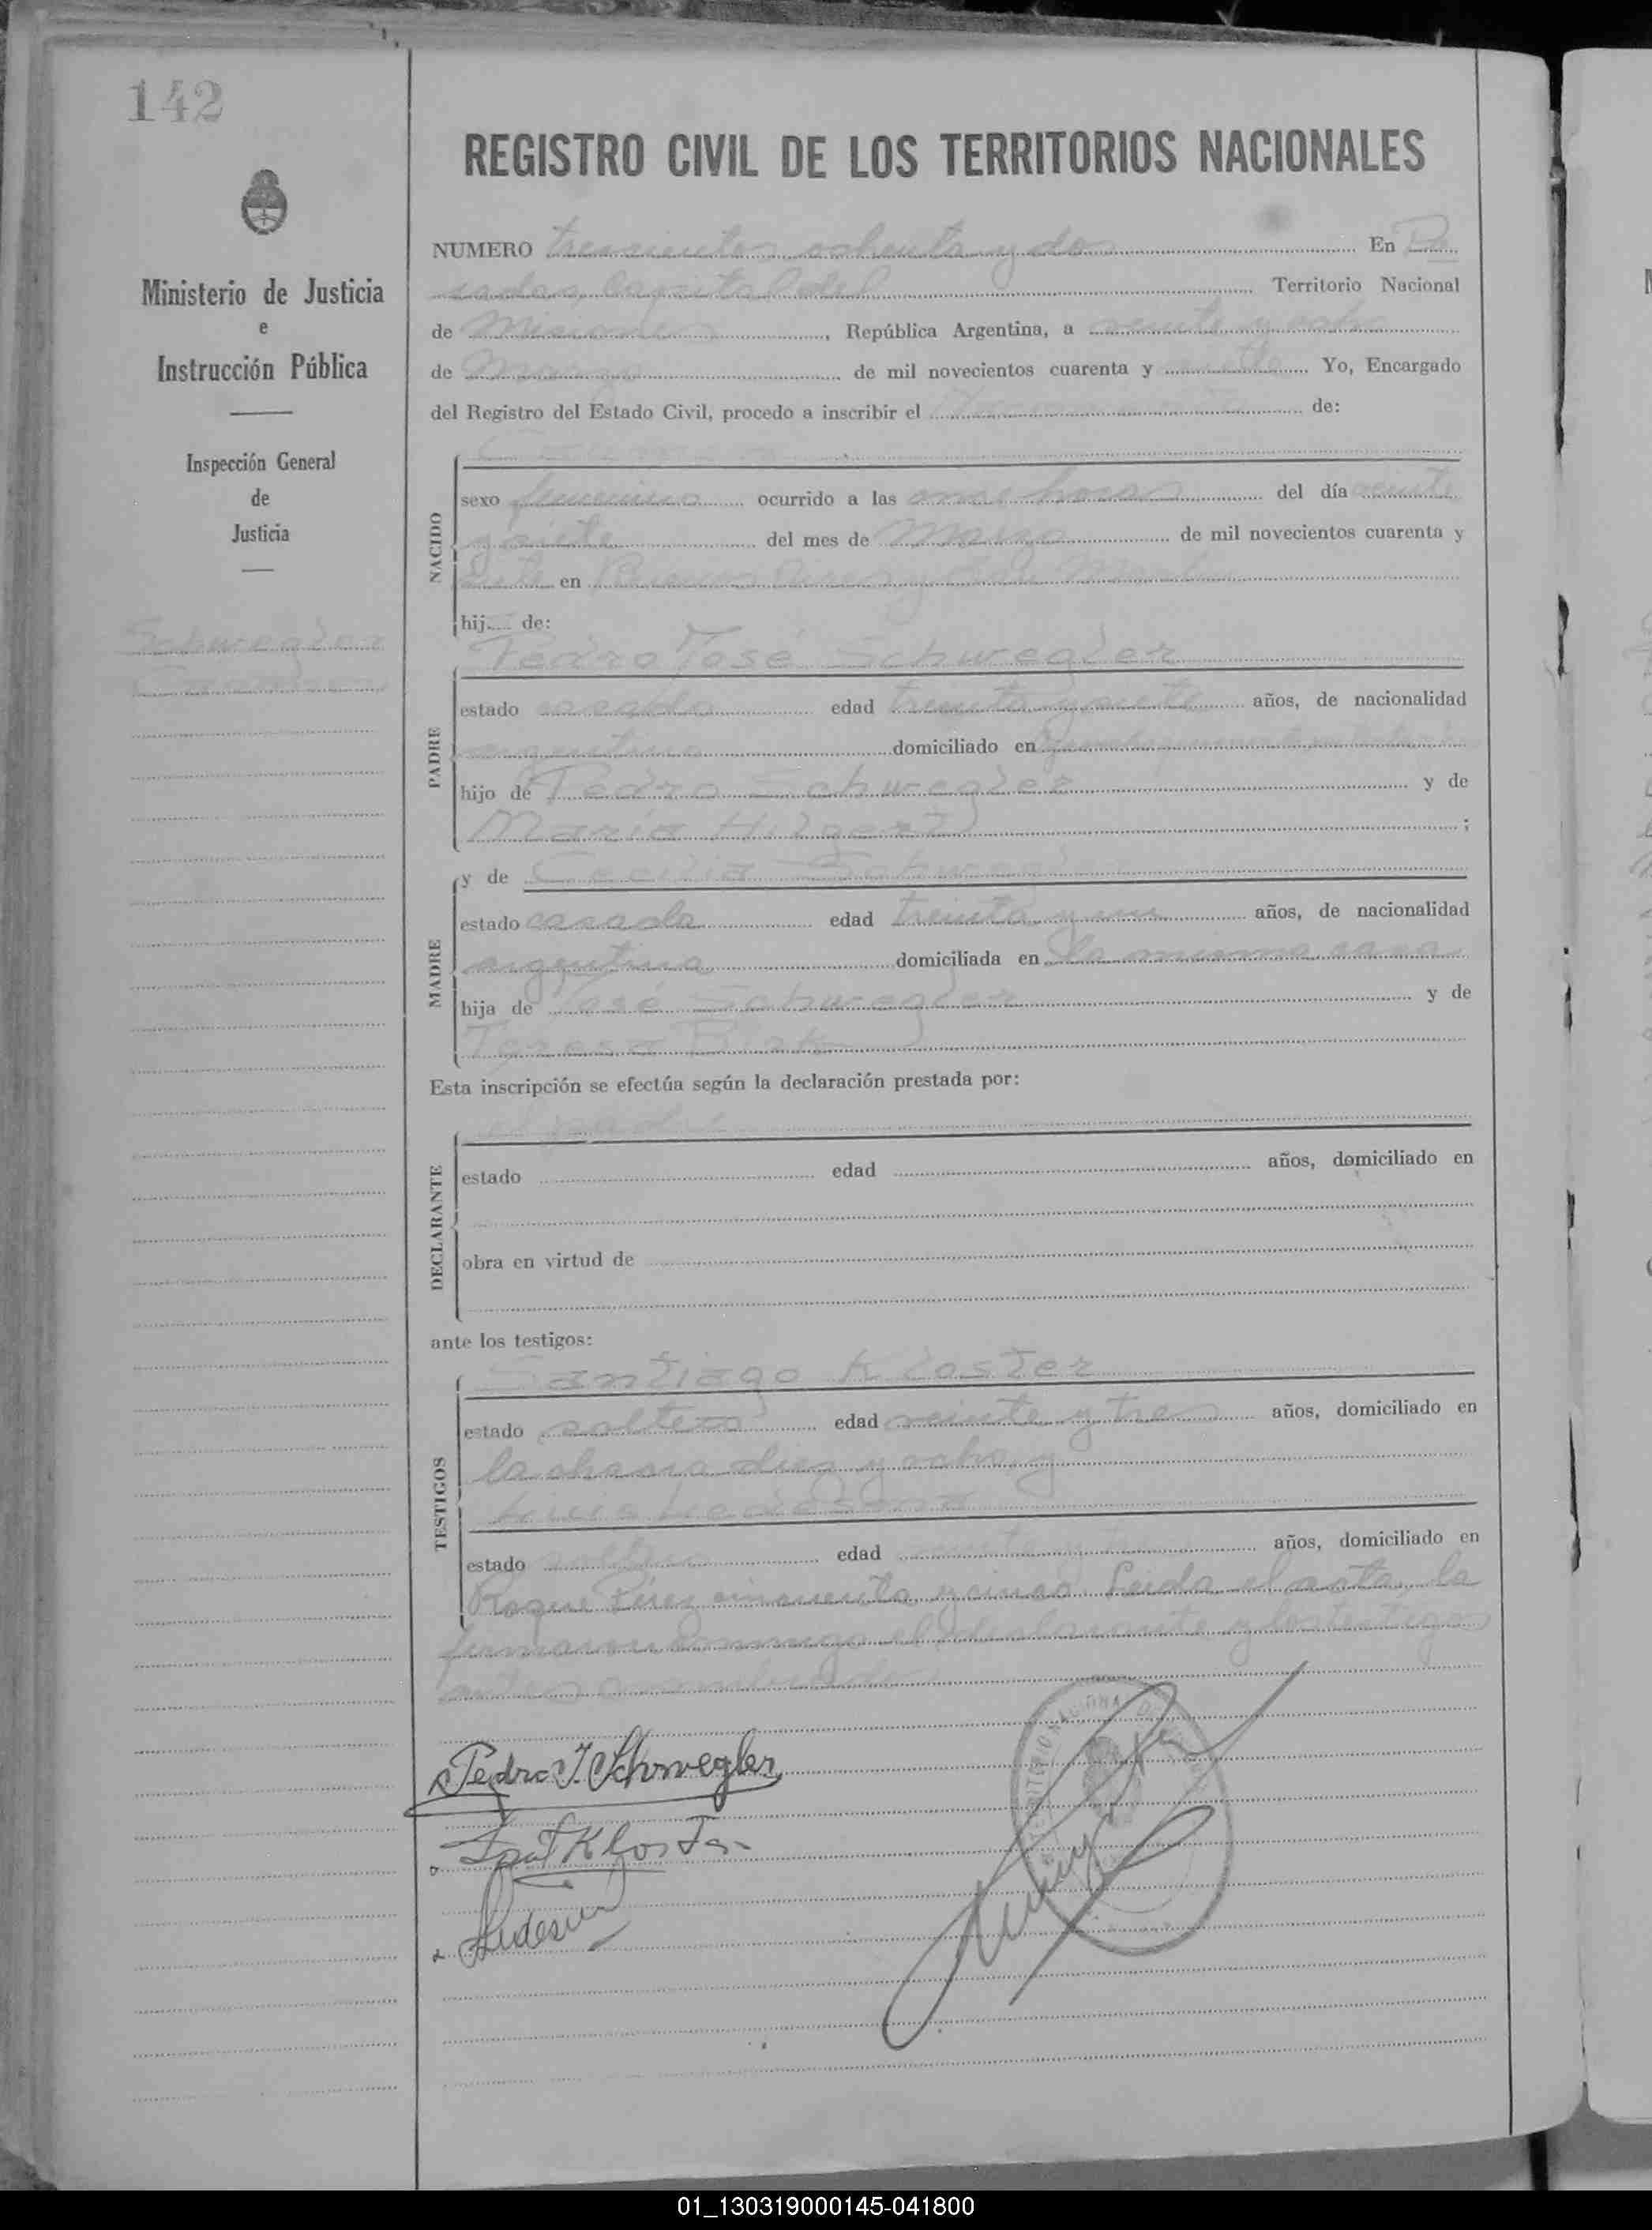 142
REGISTRO CIVIL DE LOS TERRITORIOS NACIONALES
Ministerio de Justicia
e
Instrucción Pública
Inspección General
de
Justicia
Schwegler
NUMERO trescientos ochenta y dos En Po
sadas, Capital del Territorio Nacional
de Misiones, República Argentina, a veinte y ocho
de Marzo de mil novecientos cuarenta y Yo, Encargado
del Registro del Estado Civil, procedo a inscribir el de:
NACIDO
sexo femenino ocurrido a las once horas del día veinte
y siete del mes de Marzo de mil novecientos cuarenta y
en
hij de:
Pedro José Schwegler
PADRE
estado casado edad treinta y siete años, de nacionalidad
argentino domiciliado en
hijo de Pedro Schwegler y de
María Hilgert;
y de Cecilia Schwegler
MADRE
estado casada edad treinta y un años, de nacionalidad
argentina domiciliada en la misma casa
hija de José Schwegler y de
Teresa Birk
Esta inscripción se efectúa según la declaración prestada por:
el padre
DECLARANTE
estado edad años, domiciliado en
obra en virtud de
ante los testigos:
Santiago Kloster
TESTIGOS
estado soltero edad veinte y tres años, domiciliado en
la chacra diez y ocho, y
Ledesma
estado edad años, domiciliado en
Roque Pérez cincuenta y cinco. Leida el acta, la
firmaron conmigo el declarante y los testigos
antes nombrados
Pedro J. Schwegler
Sant Kloster
Ledesma
01_130319000145-041800